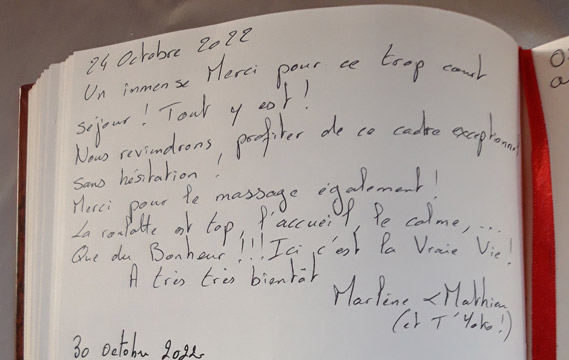 24 Octobre 2022
Un immense Merci pour ce trop court
séjour ! Tout y est !
Nous reviendrons profiter de ce cadre exceptionnel
sans hésitation !
Merci pour le massage également !
La roulotte est top, l'accueil, le calme, ...
Que du Bonheur !!! Ici c'est la Vraie Vie !
A très très bientôt
Marlène & Mathieu
(et T'Yoko !)
30 Octobre 2022